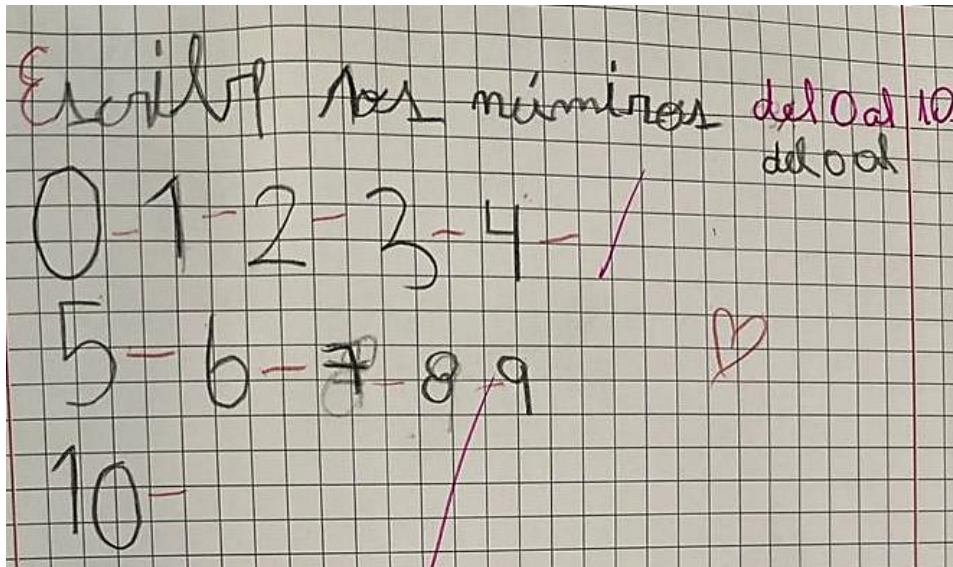 Escribr los números del 0 al 10
del 0 al
0-1-2-3-4-
5-6-7-8-9
10-